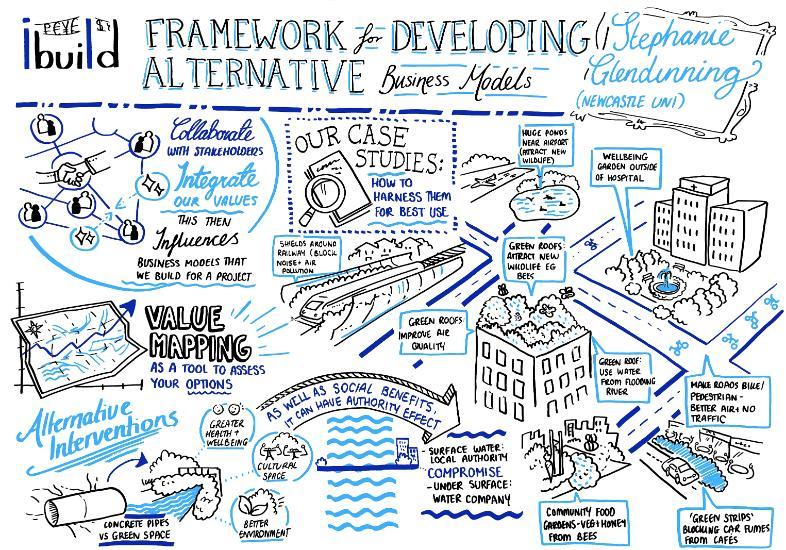 ibuild
FRAMEWORK for DEVELOPING
ALTERNATIVE Business Models
Stephanie
Glendinning
(NEWCASTLE UNI)
Collaborate
WITH STAKEHOLDERS
Integrate
OUR VALUES
THIS THEN
Influences
BUSINESS MODELS THAT
WE BUILD FOR A PROJECT
OUR CASE
STUDIES:
HOW TO
HARNESS THEM
FOR BEST USE
HUGE PONDS
NEAR AIRPORT
(ATTRACT NEW
WILDLIFE)
WELLBEING
GARDEN OUTSIDE
OF HOSPITAL
SHIELDS AROUND
RAILWAY (BLOCK
NOISE + AIR
POLLUTION
GREEN ROOFS:
ATTRACT NEW
WILDLIFE EG
BEES
GREEN ROOFS
IMPROVE AIR
QUALITY
GREEN ROOF:
USE WATER
FROM FLOODING
RIVER
MAKE ROADS BIKE/
PEDESTRIAN -
BETTER AIR + NO
TRAFFIC
VALUE
MAPPING
AS A TOOL TO ASSESS
YOUR OPTIONS
Alternative
Interventions
GREATER
HEALTH +
WELLBEING
CULTURAL
SPACE
BETTER
ENVIRONMENT
CONCRETE PIPES
VS GREEN SPACE
AS WELL AS SOCIAL BENEFITS,
IT CAN HAVE AUTHORITY EFFECT
- SURFACE WATER:
LOCAL AUTHORITY
COMPROMISE
- UNDER SURFACE:
WATER COMPANY
COMMUNITY FOOD
GARDENS - VEG + HONEY
FROM BEES
'GREEN STRIPS'
BLOCKING CAR FUMES
FROM CAFES